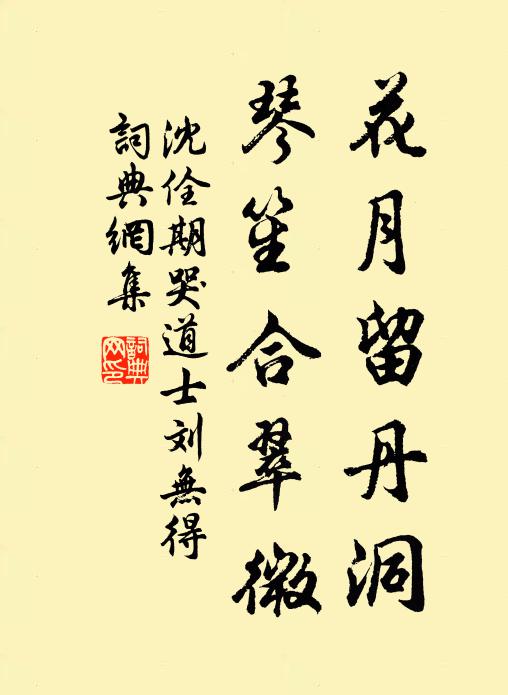 花月留丹洞
琴笙合翠微
沈佺期哭道士刘無得
詞典網集
詞典网印